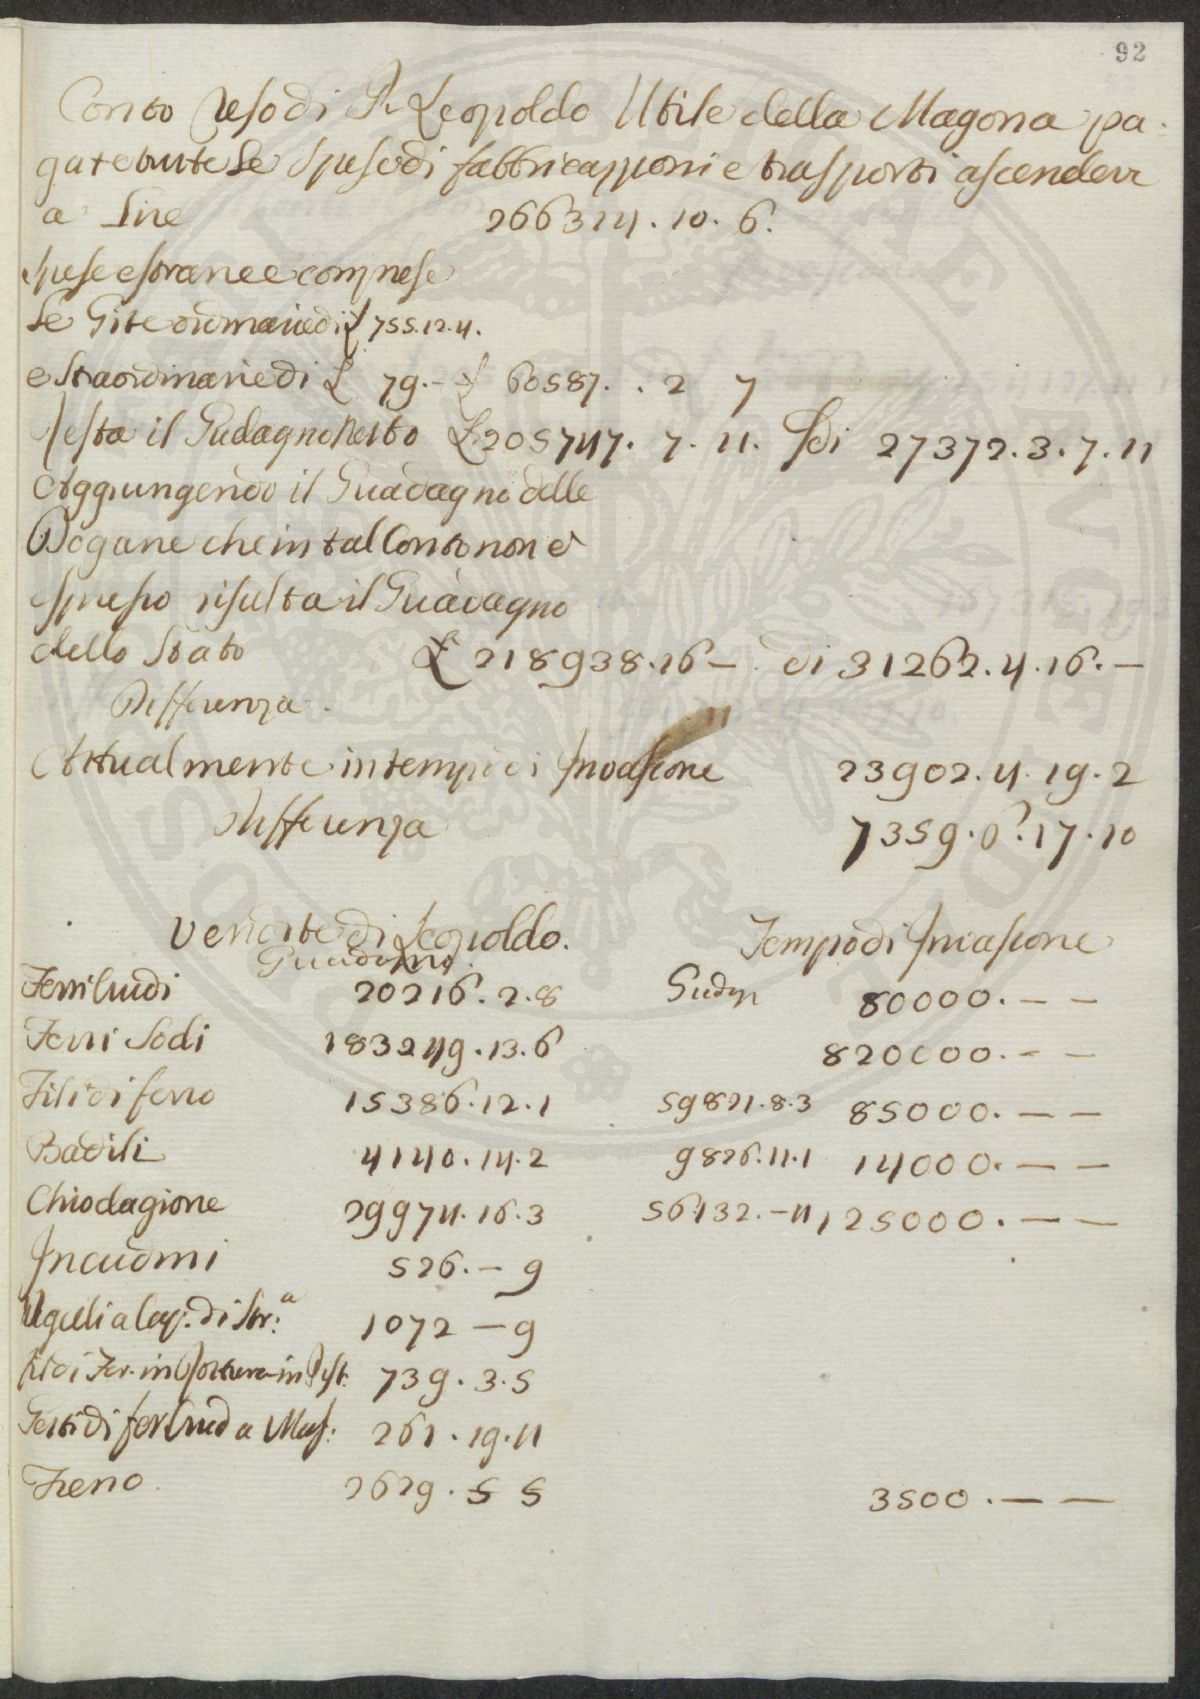 92
Conto reso di P. Leopoldo Utile della Magona pa-
gate tutte le spese di fabbricazzioni e trasporti ascendeva
a Lire 266324.10.6.
spese estranee comprese
Le Gite ordinarie di £ 755.12.4.
e Straordinarie di £ 79.- £ 60587. . 2 7
Resta il Gudagno Netto £ 205747. 7. 11. Sdi 27372.3.7.11
Aggiungendo il Guadagno delle
Dogane che in tal Conto non è
espresso risulta il Guadagno
dello Stato £ 218938.16 - di 31262.4.16.-
Differenza.
Attualmente in tempo di Invasione 23902.4.19.2
Differenza 7359.6.17.10
Vendite di Leopoldo. Tempo di Invasione
Guadagno
Ferri Crudi 20216.2.8 Gudag 80000.- -
Ferri Sodi 183249.13.6 820000.- -
Fili di ferro 15386.12.1 59821.8.3 85000.- -
Badili 4140.14.2 9826.11.1 14000.- -
Chiodagione 29974.16.3 56132.-4 125000.- -
Incudini 526.- 9
di Str.a 1072 - 9
di Fer. in in Pist. 739.3.5
di fer Crud a Mas: 261.19.11
Freno. 2629.5 5 3500.- -